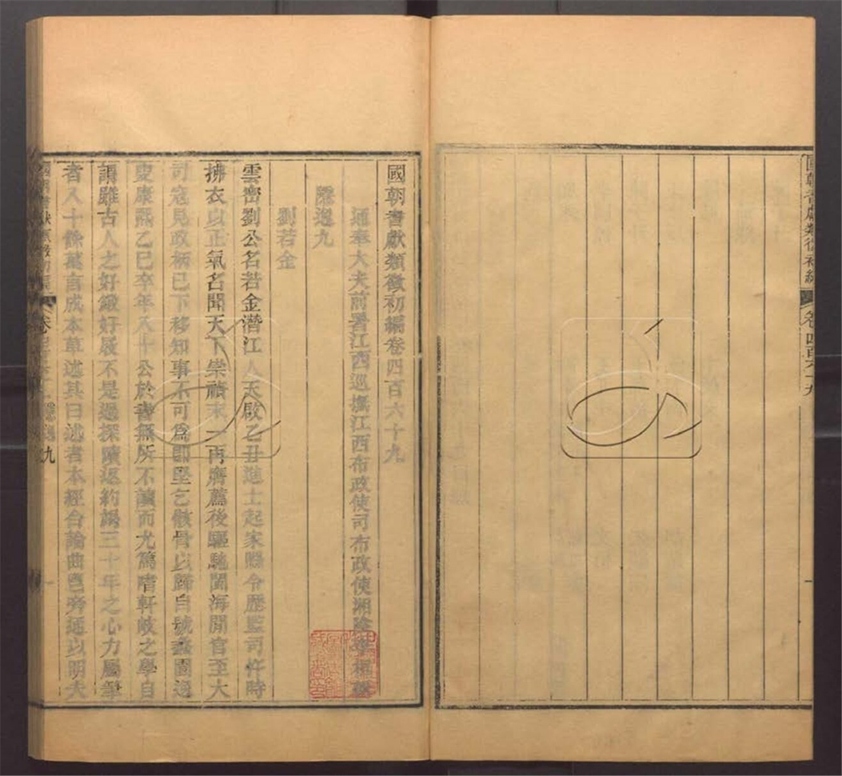 國朝耆獻類徵初編卷四百六十九
通奉大夫前署江西巡撫江西布政使司布政使湘陰李桓輯
隱逸九
劉若金
雲密劉公名若金潛江人天啟乙丑進士起家縣令歷監司忤時
拂衣以正氣名聞天下崇禎末一再膺薦後驅馳閩海間官至大
司寇見政柄已下移知事不可為即堅乞骸骨以歸自號蠡園逸
叟康熙乙巳卒年八十公於書無所不讀而尤篤嗜軒岐之學自
謂雖古人之好鍛好屐不是過探賾返約竭三十年之心力屬筆
者八十餘萬言成本草述其曰述者本經合論曲邕旁延以明夫
國朝耆獻類徵初編
卷四百六十九
隱逸九
一